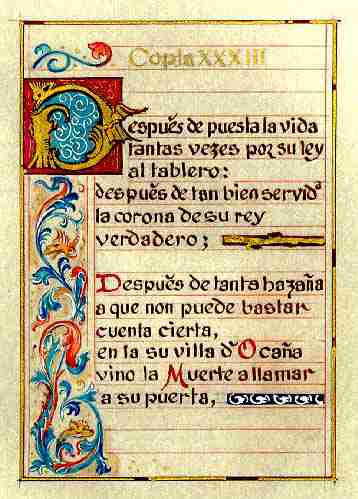 Copla XXXIII
Después de puesta la vida
tantas vezes por su ley
al tablero:
después de tan bien servida
la corona de su rey
verdadero;
Después de tanta hazaña
a que non puede bastar
cuenta cierta,
en la su villa d'Ocaña
vino la Muerte a llamar
a su puerta,